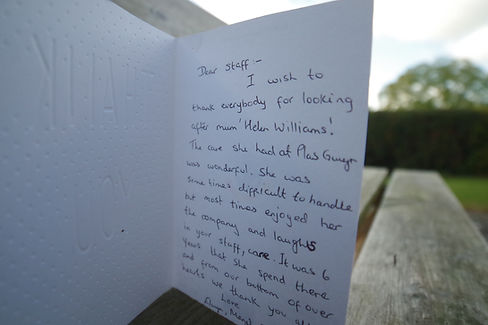 THANK
YOU
Dear Staff :-
I wish to
thank everybody for looking
after mum 'Helen Williams'.
The care she had at Plas Gwyn
was wonderful. She was
some times difficult to handle
but most times enjoyed her
the company and laughs
in your staff, care. It was 6
years that she spend there
and from our bottom of over
hearts we thank you all